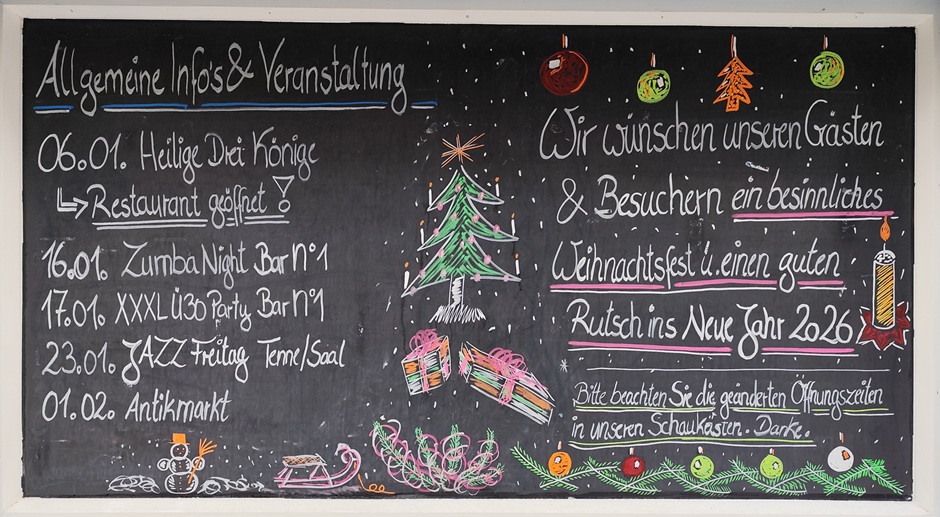 Allgemeine Info's & Veranstaltung
06.01. Heilige Drei Könige
Restaurant geöffnet!
16.01. Zumba Night Bar N°1
17.01. XXXL Ü30 Party Bar N°1
23.01. JAZZ Freitag Tenne/Saal
01.02. Antikmarkt
Wir wünschen unseren Gästen
& Besuchern ein besinnliches
Weihnachtsfest u. einen guten
Rutsch ins Neue Jahr 2026
Bitte beachten Sie die geänderten Öffnungszeiten
in unseren Schaukästen. Danke.